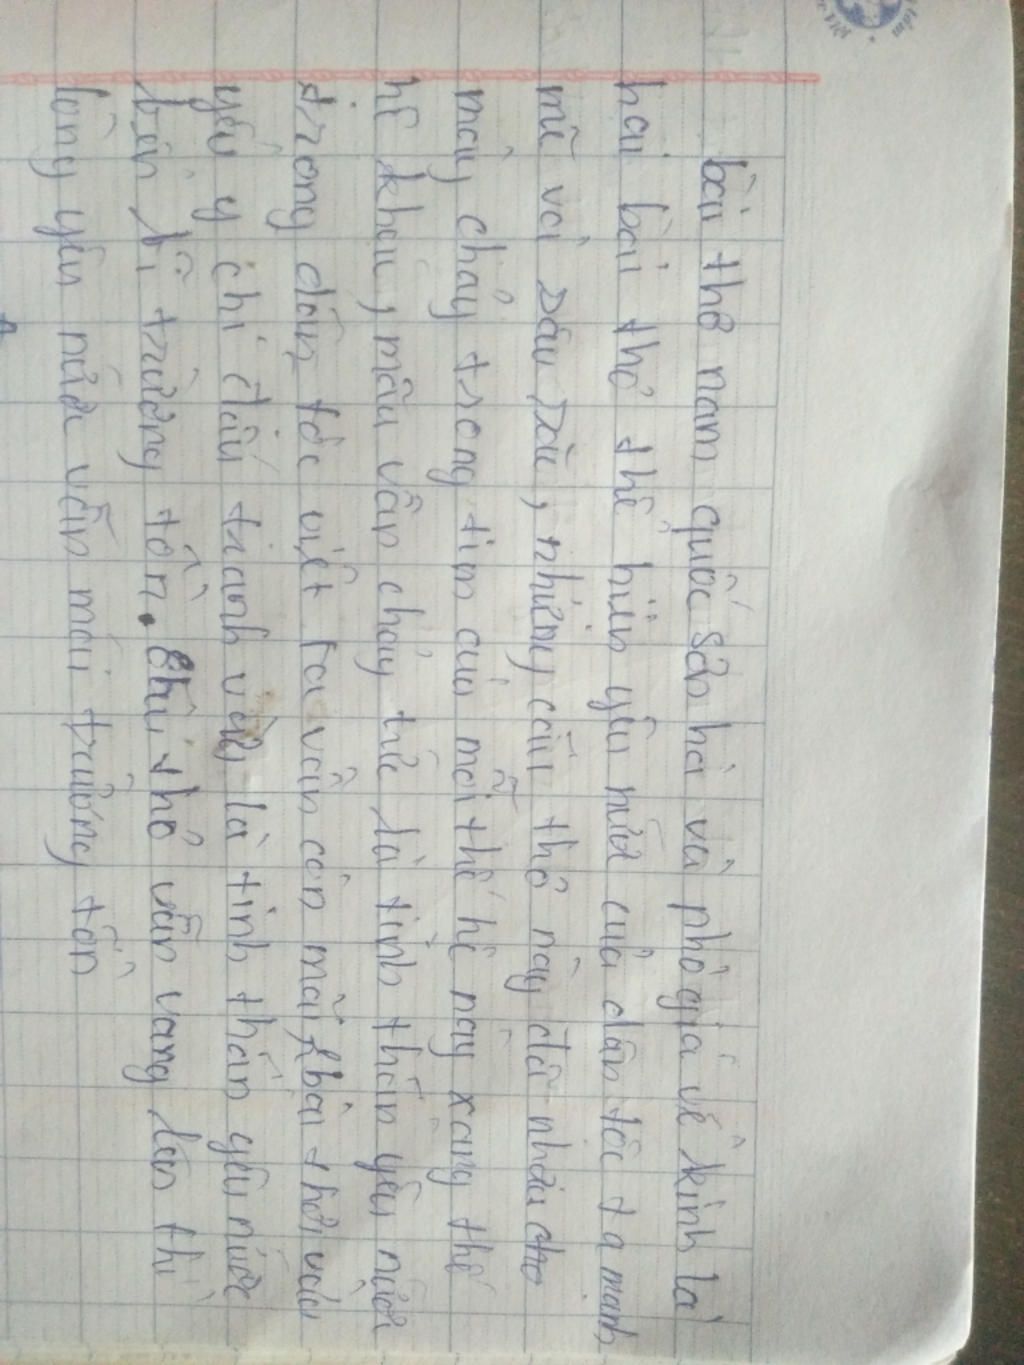 bài thơ nam quốc sơn hà và phò giá về kinh là
hai bài thơ thể hiện yêu nước của dân tộc ta mạnh
mẽ và sâu sắc, những câu thơ này đã nhào cho
máu chảy trong tim của mỗi thế hệ này xang thế
hệ khau, máu vẫn chảy tức là tinh thần yêu nước
trong dân tộc việt ta vẫn còn mãi, bài thơ vừa
yêu ý chí đấu tranh vừa là tinh thần yêu nước
bền bỉ trường tồn. thơ vẫn vang lên thì
lòng yêu nước vẫn mãi trường tồn